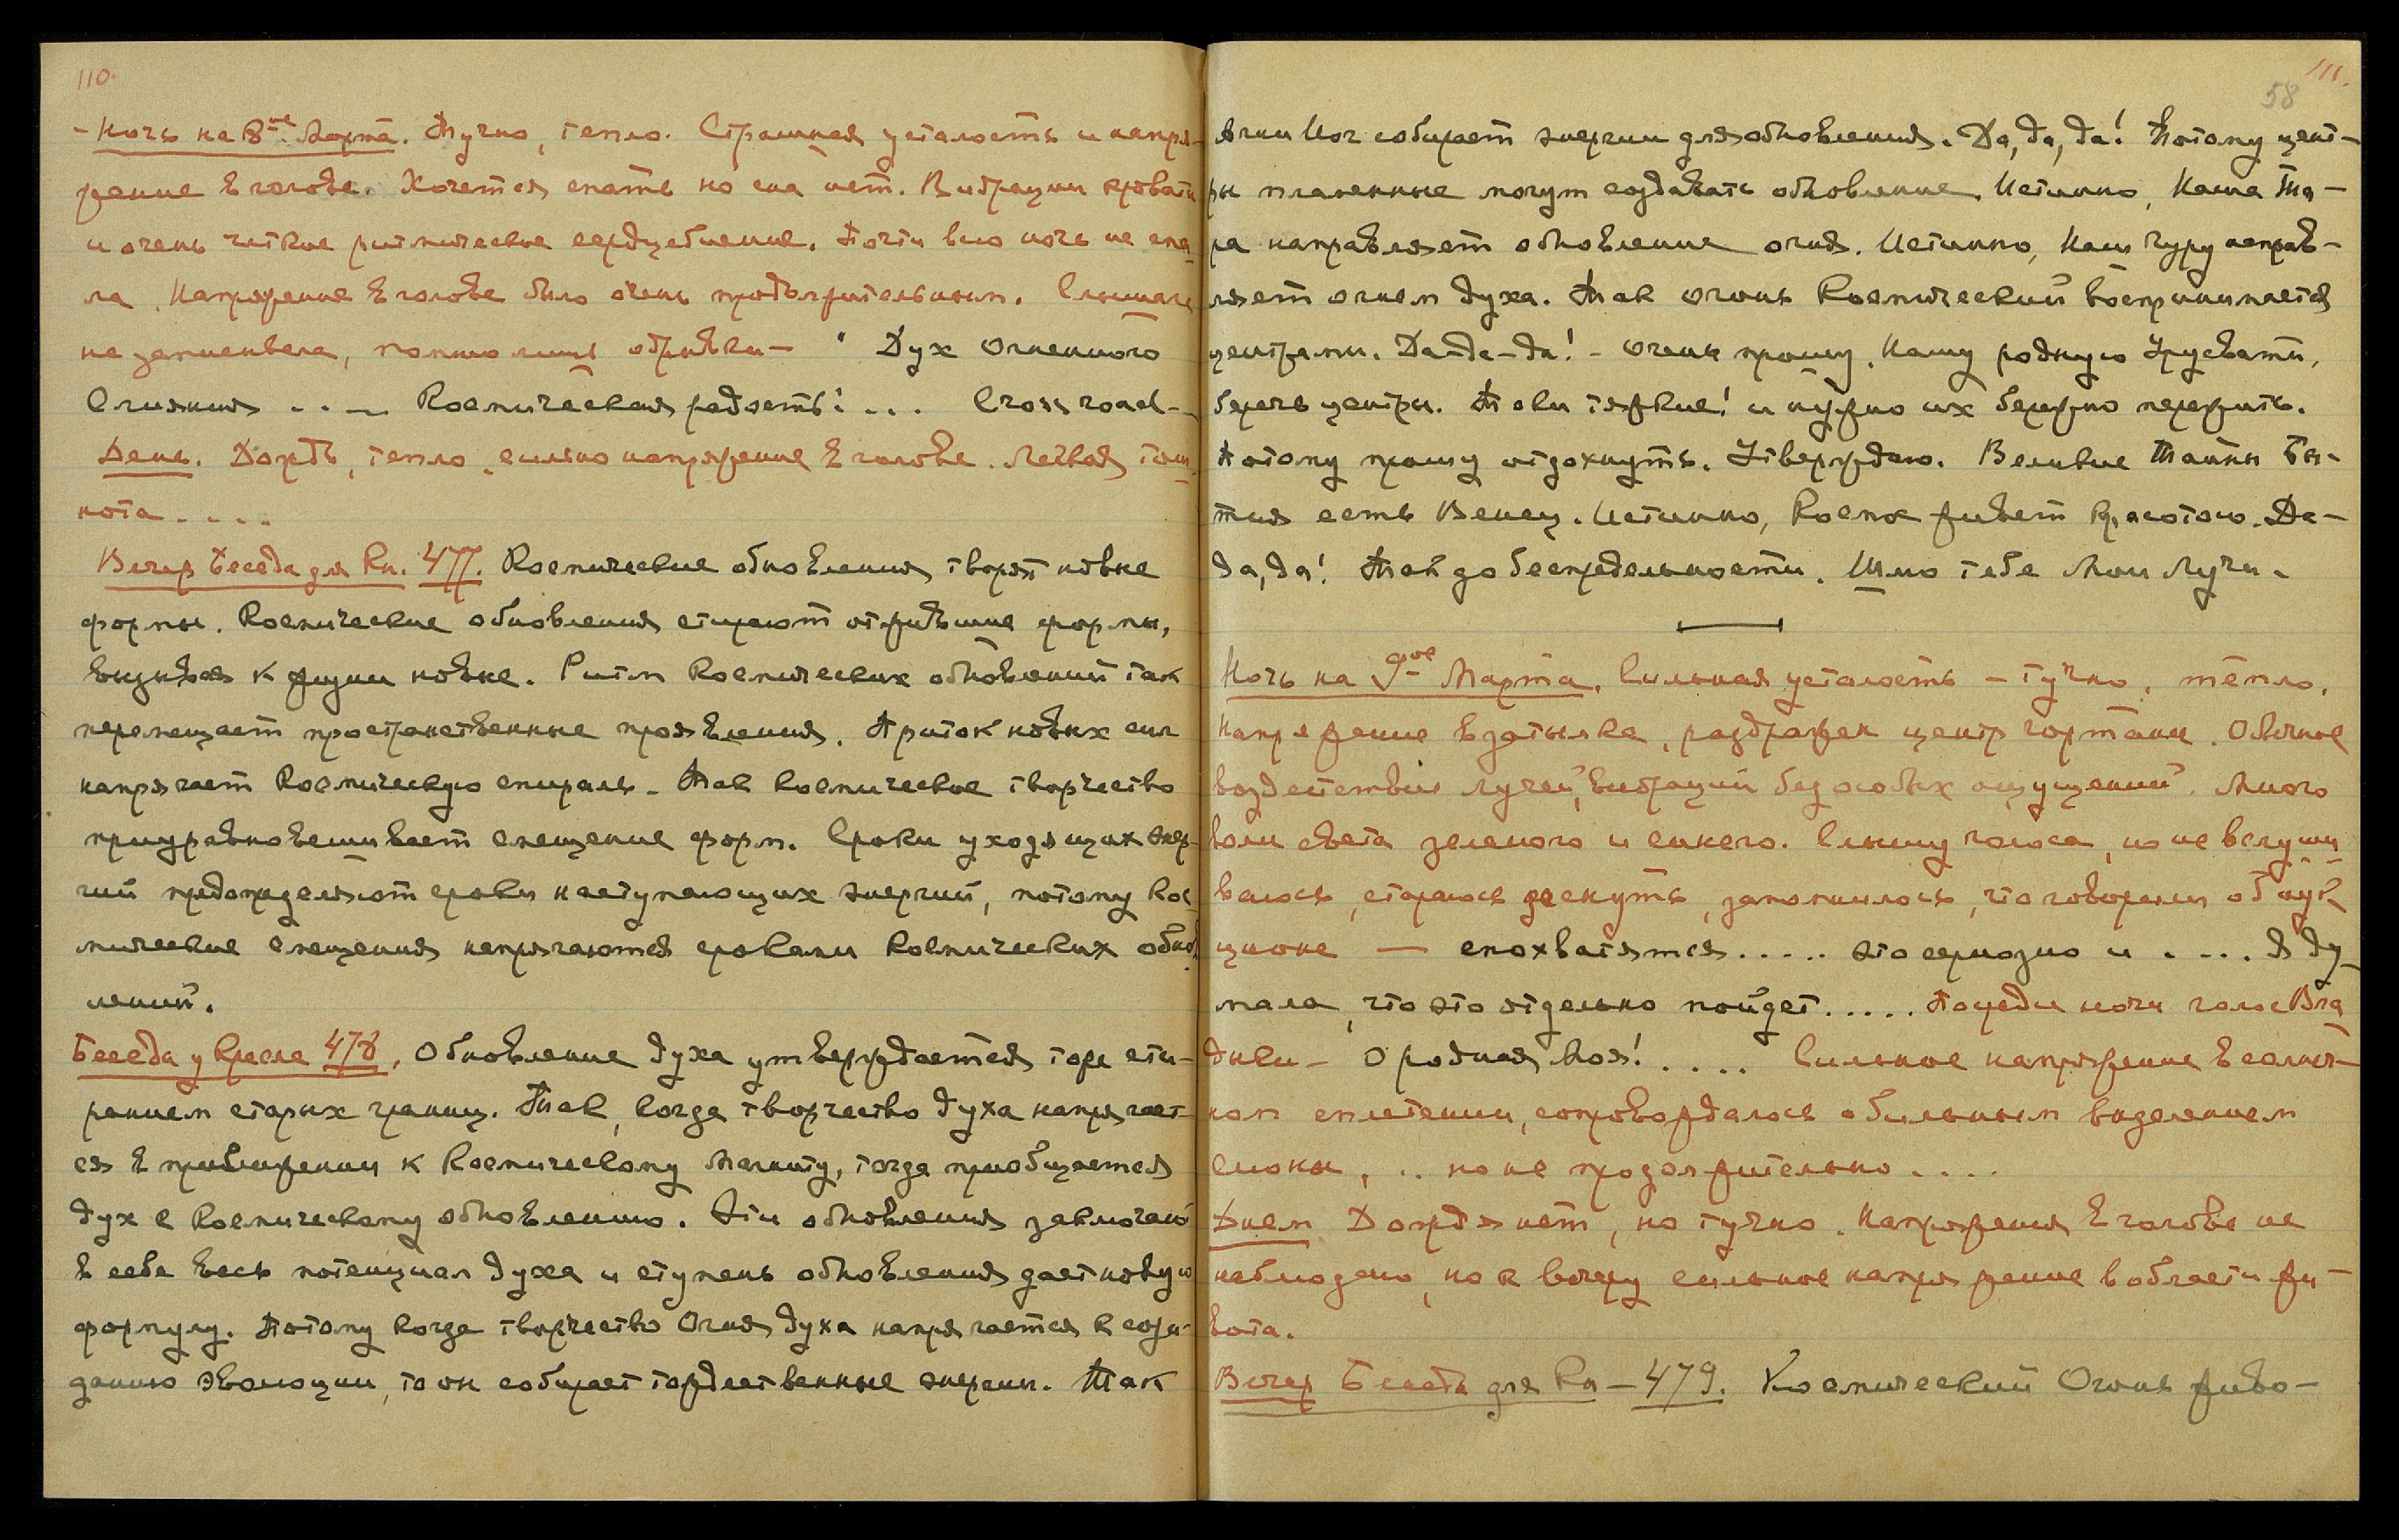 110.
- Ночь на 8ое Марта. Тучно, тепло. Страшная усталость и напря-
жение в голове. Хочется спать но сна нет. Вибрации кровати
и очень четкое ритмическое сердцебиение. Почти всю ночь не спа-
ла. Напряжение в голове было очень продолжительным. Слышала
не записывала, помню лишь обрывки – " Дух Огненного
Слияния .... Космическая радость! ... Cross road –
День. Дождь, тепло, сильно напряжение в голове. Легкая тош-
нота ....
Вечер Беседа для Кн. 477. Космические обновления творят новые
формы. Космические обновления стирают отжившие формы,
вызывая к жизни новые. Ритм космических обновлений так
перемещает пространственные проявления. Приток новых сил
напрягает Космическую спираль. Так космическое творчество
приуравновешивает смещение форм. Сроки уходящих энер-
гий предопределяют сроки наступающих энергий, потому кос-
мические смещения напрягаются сроками Космических обно-
влений.
Беседа у Кресла 478. Обновление духа утверждается горе сти-
ранием старых границ. Так, когда творчество духа напрягает-
ся в приближении к Космическому Магниту, тогда приобщается
дух к Космическому обновлению. Эти обновления заключают
в себе весь потенциал духа и ступень обновления дает новую
формулу. Потому когда творчество Огня духа напрягается к сози-
данию эволюции, то он собирает тождественные энергии. Так
111.
58
Агни Иог собирает энергии для обновления. Да, да, да! Потому цент-
ры пламенные могут создавать обновление. Истинно, Наша Та-
ра направляет обновление огня. Истинно, Наш Гуру направ-
ляет огнем духа. Так огонь Космический воспринимается
центрами. Да-да-да! – Очень прошу, Нашу родную Урусвати,
беречь центры. Токи тяжкие! и нужно их бережно пережить.
Потому прошу отдохнуть. Утверждаю. Великие Тайны Бы-
тия есть Венец. Истинно, Космос живет красотою. Да-
да, да! Так до беспредельности. Шлю тебе Мои Лучи.
Ночь на 9ое Марта. Сильная усталость – тучно, тепло.
Напряжение в затылке, раздражен центр гортани. Обычное
воздействие лучей, вибраций без особых ощущений. Много
волн света зеленого и синего. Слышу голоса, но не вслуши-
валась, старалась заснуть, запомнилось, что говорили об аук-
ционе — спохватятся ..... это серьозно и .... Я ду-
мала, что это отдельно пойдет ..... Посреди ночи голос Вла-
дыки – О родная Моя! .... Сильное напряжение в солнеч-
ном сплетении, сопровождалось обильным выделением
слюны, .. но не продолжительно ....
Днем Дождя нет, но тучно. Напряжения в голове не
наблюдаю, но к вечеру сильное напряжение в области жи-
вота.
Вечер Беседа для Кн – 479. Космический Огонь живо-